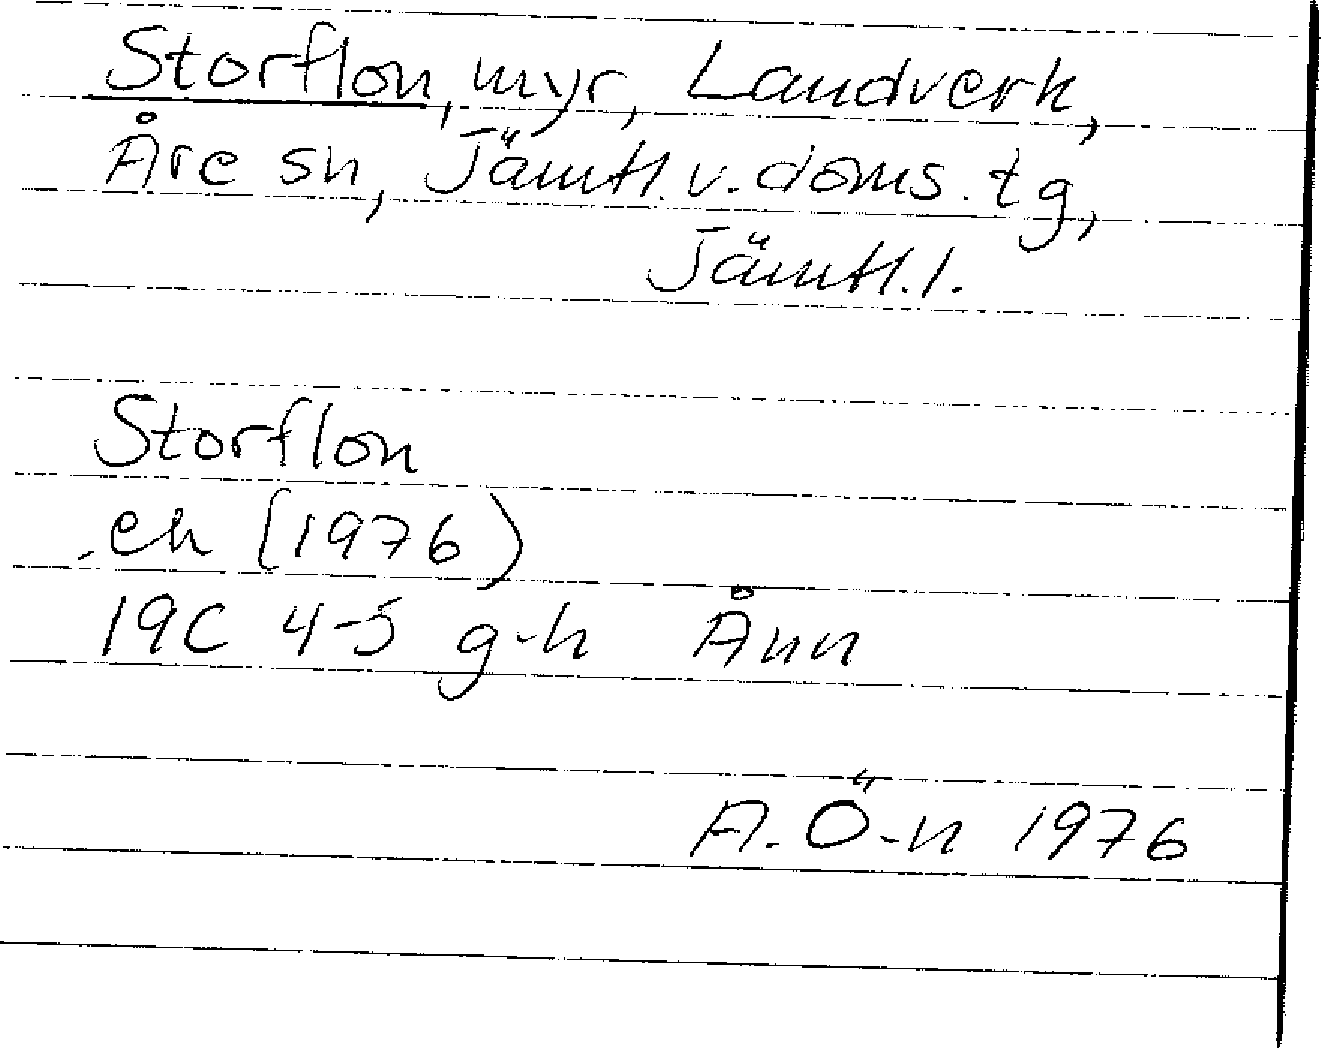 Storflon, myr, Landverk,
Åre sn, Jämtl. v. doms. tg,
Jämtl. l.
Storflon
ek (1976)
19C 4-5 g-h Ånn
A. Ö-n 1976